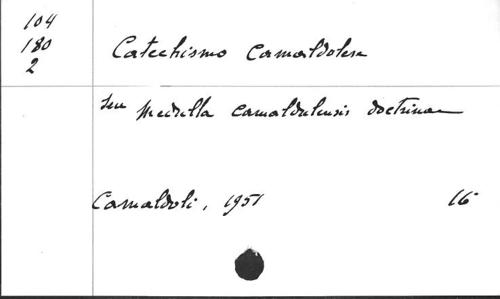 104
180
2
Catechismo Camaldolese
seu Medulla camaldulensis doctrinae
Camaldoli, 1951 16°